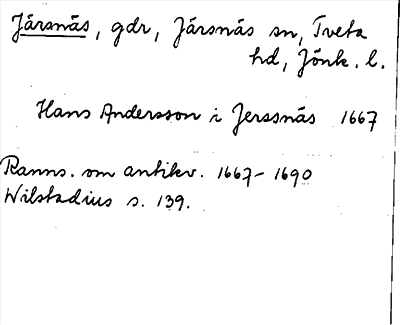 Järsnäs, gdr, Järsnäs sn, Tveta
hd, Jönk. l.
Hans Andersson i Jerssnäs 1667
Ranns. om antikv. 1667-1690
Wilstadius s. 139.